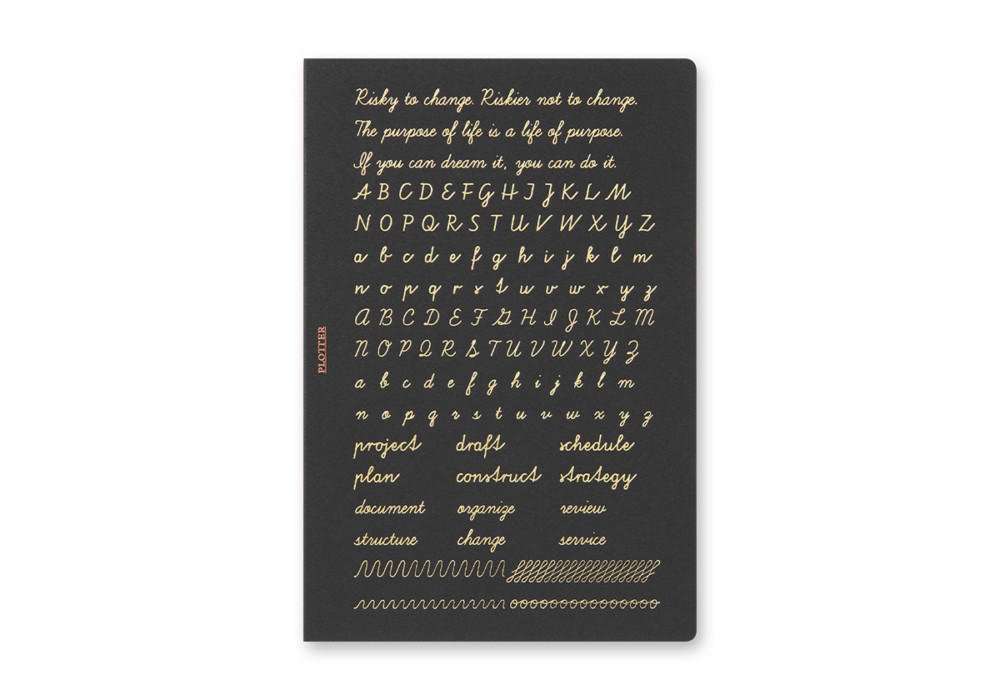 Risky to change. Riskier not to change.
The purpose of life is a life of purpose.
If you can dream it, you can do it.
A B C D E F G H I J K L M
N O P Q R S T U V W X Y Z
a b c d e f g h i j k l m
n o p q r s t u v w x y z
A B C D E F G H I J K L M
N O P Q R S T U V W X Y Z
a b c d e f g h i j k l m
n o p q r s t u v w x y z
project draft schedule
plan construct strategy
document organize review
structure change service
PLOTTER